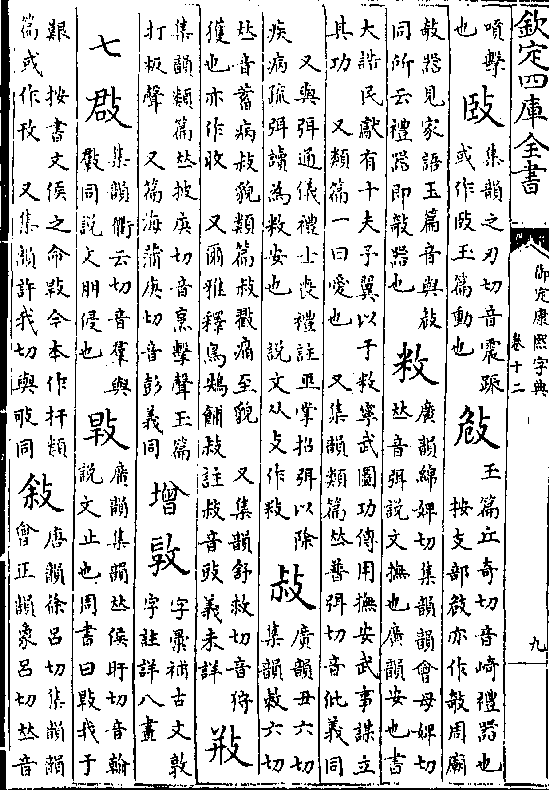 欽定四庫全書
御定康熙字典
卷十二
九
噴擊
也
集韻之刃切音震䟴
或作䟴玉篇動也
攲
玉篇丘奇切音崎禮器也
按支部攲亦作敧周廟
敧器見家語玉篇音與㪉
同所云禮器即敧器也
敉
廣韻綿婢切集韻韻會母婢切
𠀤音弭說文撫也廣韻安也書
大誥民獻有十夫予翼以于敉寧武圖功傳用撫安武事謀立
其功 又類篇一曰愛也 又集韻類篇𠀤普弭切音仳義同
又與弭通儀禮士喪禮註巫掌招弭以除
疾病疏弭讀為敉安也 說文从攴作敉
㪇
廣韻丑六切
集韻敕六切
𠀤音蓄病㪇貌類篇㪇㪡痛至貌 又集韻舒救切音狩
獲也亦作收 又爾雅釋鳥鶝㪇註㪇音豉義未詳
集韻類篇𠀤披庚切音烹擊聲玉篇
打板聲 又篇海蒲庚切音彭義同
增
字彙補古文敦
字註詳八畫
七
㪊
集韻衢云切音羣與
同說文朋侵也
𢽏
廣韻集韻𠀤侯旰切音翰
說文止也周書曰𢽏我于
艱 按書文侯之命𢽏今本作扞類
篇或作㪋 又集韻許我切與㰤同
敍
唐韻徐呂切集韻韻
會正韻象呂切𠀤音